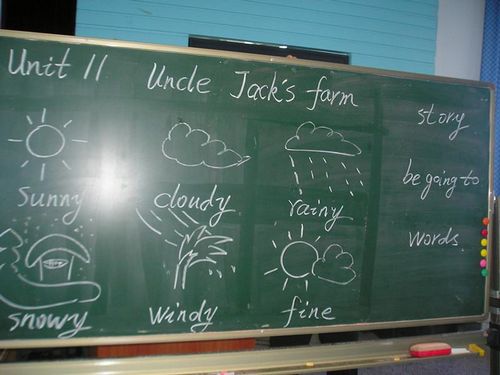 Unit 11 Uncle Jack's farm
story
sunny cloudy rainy
be going to
words.
snowy windy fine